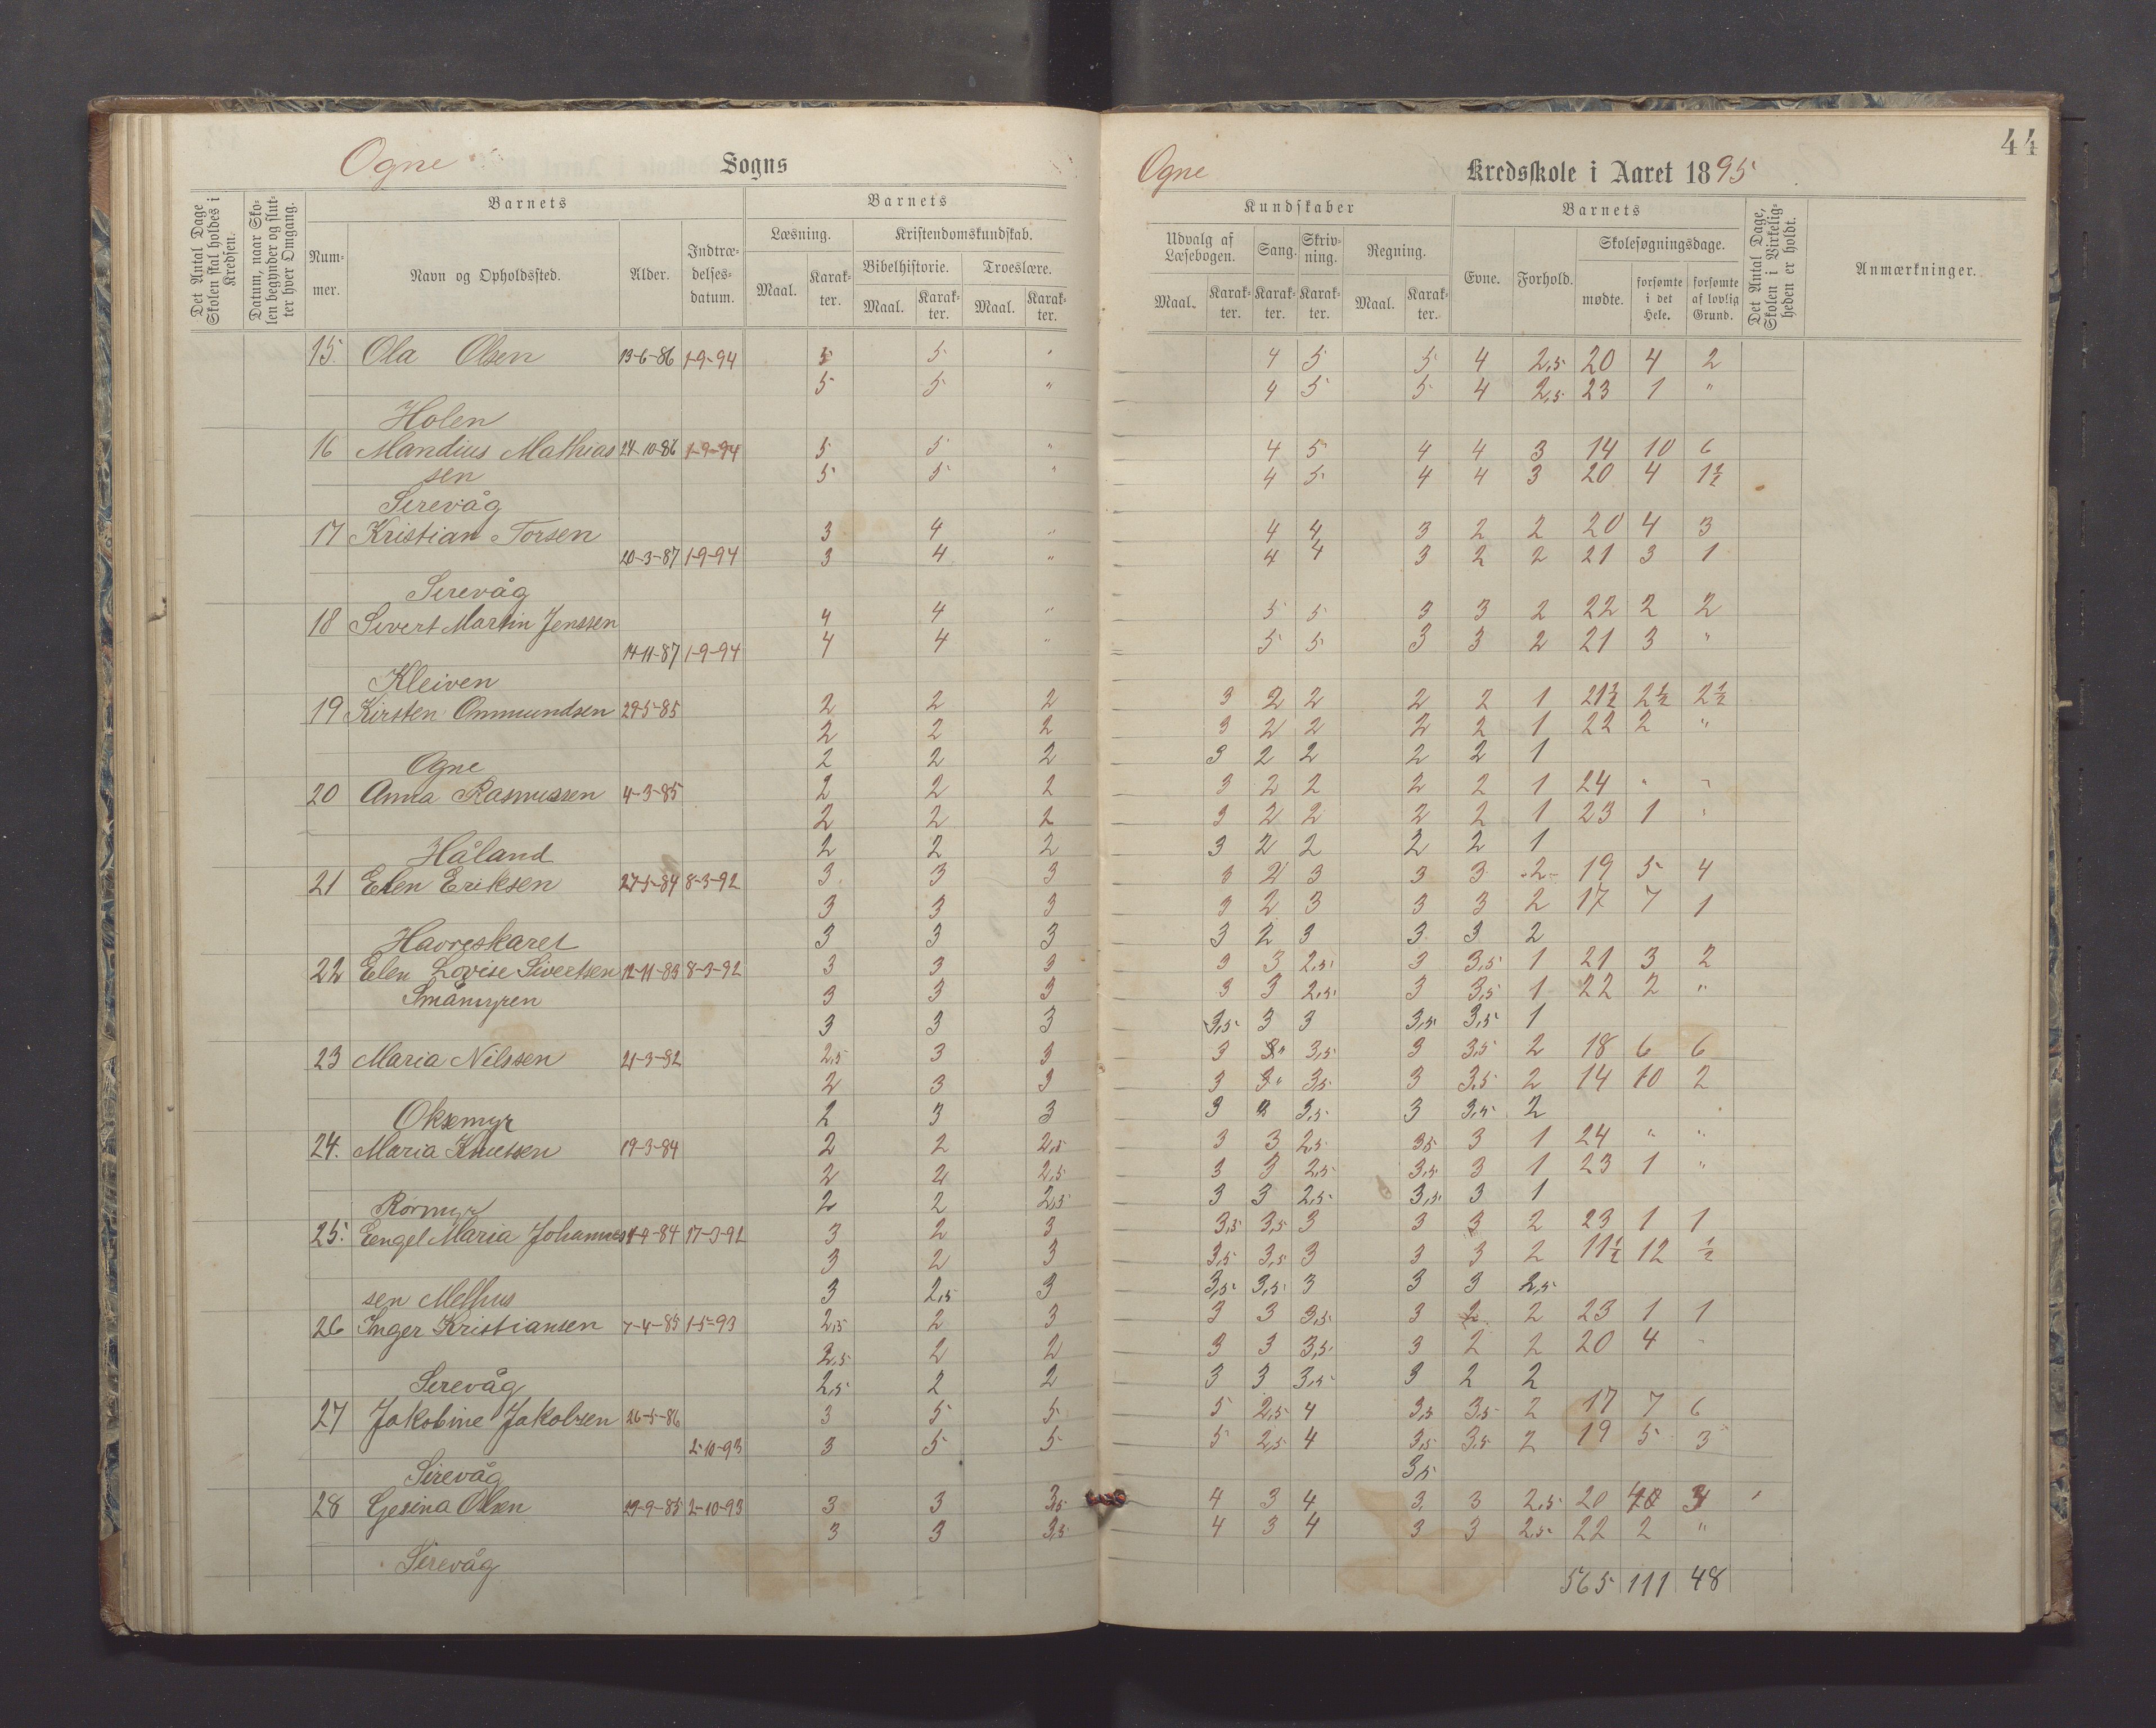 44
Ogne Sogns Ogne Kredsskole i Aaret 1895
Det Antal Dage Skolen skal holdes i Kredsen.
Datum, naar Skolen begynder og slutter hver Omgang.
Barnets
Nummer.
Navn og Opholdssted.
Alder.
Indtrædelsesdatum.
Barnets
Læsning.
Maal.
Karakter.
Kristendomskundskab.
Bibelhistorie.
Maal.
Karakter.
Troeslære.
Maal.
Karakter.
Kundskaber
Udvalg af Læsebogen.
Maal.
Karakter.
Sang.
Karakter.
Skrivning.
Karakter.
Regning.
Maal.
Karakter.
Barnets
Evne.
Forhold.
Skolesøgningsdage.
mødte.
forsømte i det Hele.
forsømte af lovlig Grund.
Det Antal Dage, Skolen i Virkeligheden er holdt.
Anmærkninger.
15. Ola Olsen 13-6-86 1-9-94 5 5 " 4 5 5 4 2,5 20 4 2
5 5 " 4 5 5 4 2,5 23 1 "
Holen
16 Mandius Mathias 24-10-86 1-9-94 5 5 " 4 5 4 4 3 14 10 6
sen 5 5 " 4 5 4 4 3 20 4 1½
Serevåg
17 Kristian Torsen 3 4 " 4 4 3 2 2 20 4 3
20-3-87 1-9-94 3 4 " 4 4 3 2 2 21 3 1
Serevåg
18 Sivert Martin Jenssen 4 4 " 5 5 3 3 2 22 2 2
14-11-87 1-9-94 4 4 " 5 5 3 3 2 21 3 "
Kleiven
19 Kirsten Ommundsen 29-5-85 2 2 2 3 2 2 2 2 1 21½ 2½ 2½
2 2 2 3 2 2 2 2 1 22 2 "
Ogne 2 2 2 3 2 2 2 2 1
20 Anna Rasmussen 4-3-85 2 2 2 3 2 2 2 2 1 24 " "
2 2 2 3 2 2 2 2 1 23 1 "
Håland 2 2 2 3 2 2 2 2 1
21 Elen Eriksen 27-5-84 8-3-92 3 3 3 3 2 3 3 3 2 19 5 4
3 3 3 3 2 3 3 3 2 17 7 1
Havreskaret 3 3 3 3 2 3 3 3 2
22 Elen Lovise Sivertsen 12-11-83 8-3-92 3 3 3 3 3 2,5 3 3,5 1 21 3 2
Småmyren 3 3 3 3 3 2,5 3 3,5 1 22 2 "
3 3 3 3,5 3 3 3,5 3,5 1
23 Maria Nilssen 21-3-82 2,5 3 3 3 3 3,5 3 3,5 2 18 6 6
2 3 3 3 3 3,5 3 3,5 2 14 10 2
Oksemyr 2 3 3 3 3 3,5 3 3,5 2
24. Maria Knutsen 19-3-84 2 2 2,5 3 3 2,5 3,5 3 1 24 " "
2 2 2,5 3 3 2,5 3,5 3 1 23 1 "
Rørmyr 2 2 2,5 3 3 2,5 3,5 3 1
25. Eengel Maria Johannes 17-3-92 3 2 3 3,5 3,5 3 3 3 2 23 1 1
3 2 3 3,5 3,5 3 3 3 2 11½ 12 ½
sen Melhus 3 2,5 3 3,5 3,5 3 3 3 2,5
26 Inger Kristiansen 7-4-85 1-5-93 2,5 2 3 3 3 3,5 3 2 2 23 1 1
2,5 2 2 3 3 3,5 3 2 2 20 4 "
Serevåg 2,5 2 2 3 3 3,5 3 2 2
27 Jakobine Jakobsen 26-5-86 3 5 5 5 2,5 4 3,5 3,5 2 17 7 6
2-10-93 3 5 5 5 2,5 4 3,5 3,5 2 19 5 3
Sirevåg 3,5
28 Gesina Olsen 29-9-85 2-10-93 3 3 3,5 4 3 4 3 3 2,5 20 4
3 3 3,5 4 3 4 3 3 2,5 22 2 "
Sirevåg
565 111 48